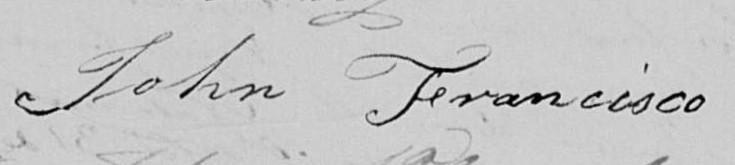 John Francisco